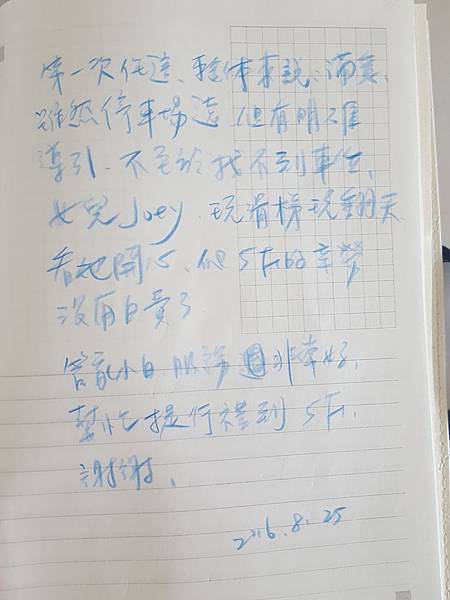 第一次住這、整体來說、滿意、
雖然停車場遠、但有明確
導引、不至於找不到車位、
女兒Joey、玩滑梯玩翻天
看她開心、爬5F的辛勞
沒有白費了
管家小白服務非常好、
幫忙提行禮到5F、
謝謝、
2016.8.25